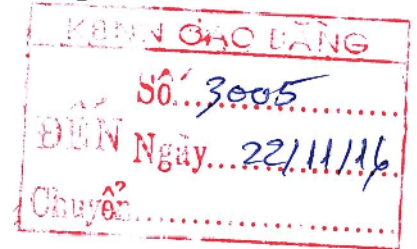 KBNN CAO BẰNG
Số: 3005
ĐẾN Ngày 22/11/16
Chuyển